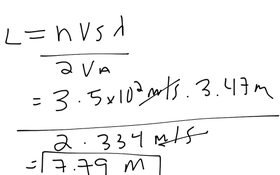 L = n Vs λ
2 VA
= 3 · 5x10² m/s · 3.47 m
2 · 334 m/s
= 7.79 m